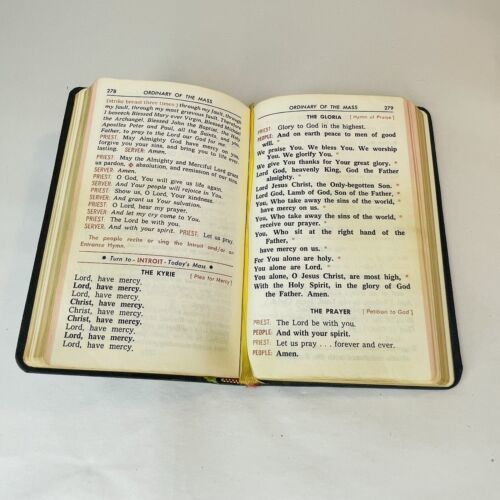 278 ORDINARY OF THE MASS
(strike breast three times) through my fault, through
my fault, through my most grievous fault. Therefore
I beseech Blessed Mary ever Virgin, Blessed Michael
the Archangel, Blessed John the Baptist, the Holy
Apostles Peter and Paul, all the Saints, and you,
Father, to pray to the Lord our God for me.
PRIEST: May Almighty God have mercy on you,
forgive you your sins, and bring you to life ever-
lasting. SERVER: Amen.
PRIEST: May the Almighty and Merciful Lord grant
us pardon, ✠ absolution, and remission of our sins.
SERVER: Amen.
PRIEST: O God, You will give us life again.
SERVER: And Your people will rejoice in You.
PRIEST: Show us, O Lord, Your kindness.
SERVER: And grant us Your salvation.
PRIEST: O Lord, hear my prayer.
SERVER: And let my cry come to You.
PRIEST: The Lord be with you.
SERVER: And with your spirit. PRIEST: Let us pray.
The people recite or sing the Introit and/or an
Entrance Hymn.
● Turn to - INTROIT - Today's Mass ●
THE KYRIE [ Plea for Mercy ]
Lord, have mercy.
Lord, have mercy.
Lord, have mercy.
Christ, have mercy.
Christ, have mercy.
Christ, have mercy.
Lord, have mercy.
Lord, have mercy.
Lord, have mercy.
ORDINARY OF THE MASS 279
THE GLORIA [ Hymn of Praise ]
PRIEST: Glory to God in the highest.
PEOPLE: And on earth peace to men of good
will. *
We praise You. We bless You. We worship
You. We glorify You. *
We give You thanks for Your great glory. *
Lord God, heavenly King, God the Father
almighty. *
Lord Jesus Christ, the Only-begotten Son. *
Lord God, Lamb of God, Son of the Father. *
You, Who take away the sins of the world, *
have mercy on us. *
You, Who take away the sins of the world, *
receive our prayer. *
You, Who sit at the right hand of the
Father, *
have mercy on us.
For You alone are holy. *
You alone are Lord. *
You alone, O Jesus Christ, are most high, *
With the Holy Spirit, in the glory of God
the Father. Amen.
THE PRAYER [ Petition to God ]
PRIEST: The Lord be with you.
PEOPLE: And with your spirit.
PRIEST: Let us pray . . . forever and ever.
PEOPLE: Amen.